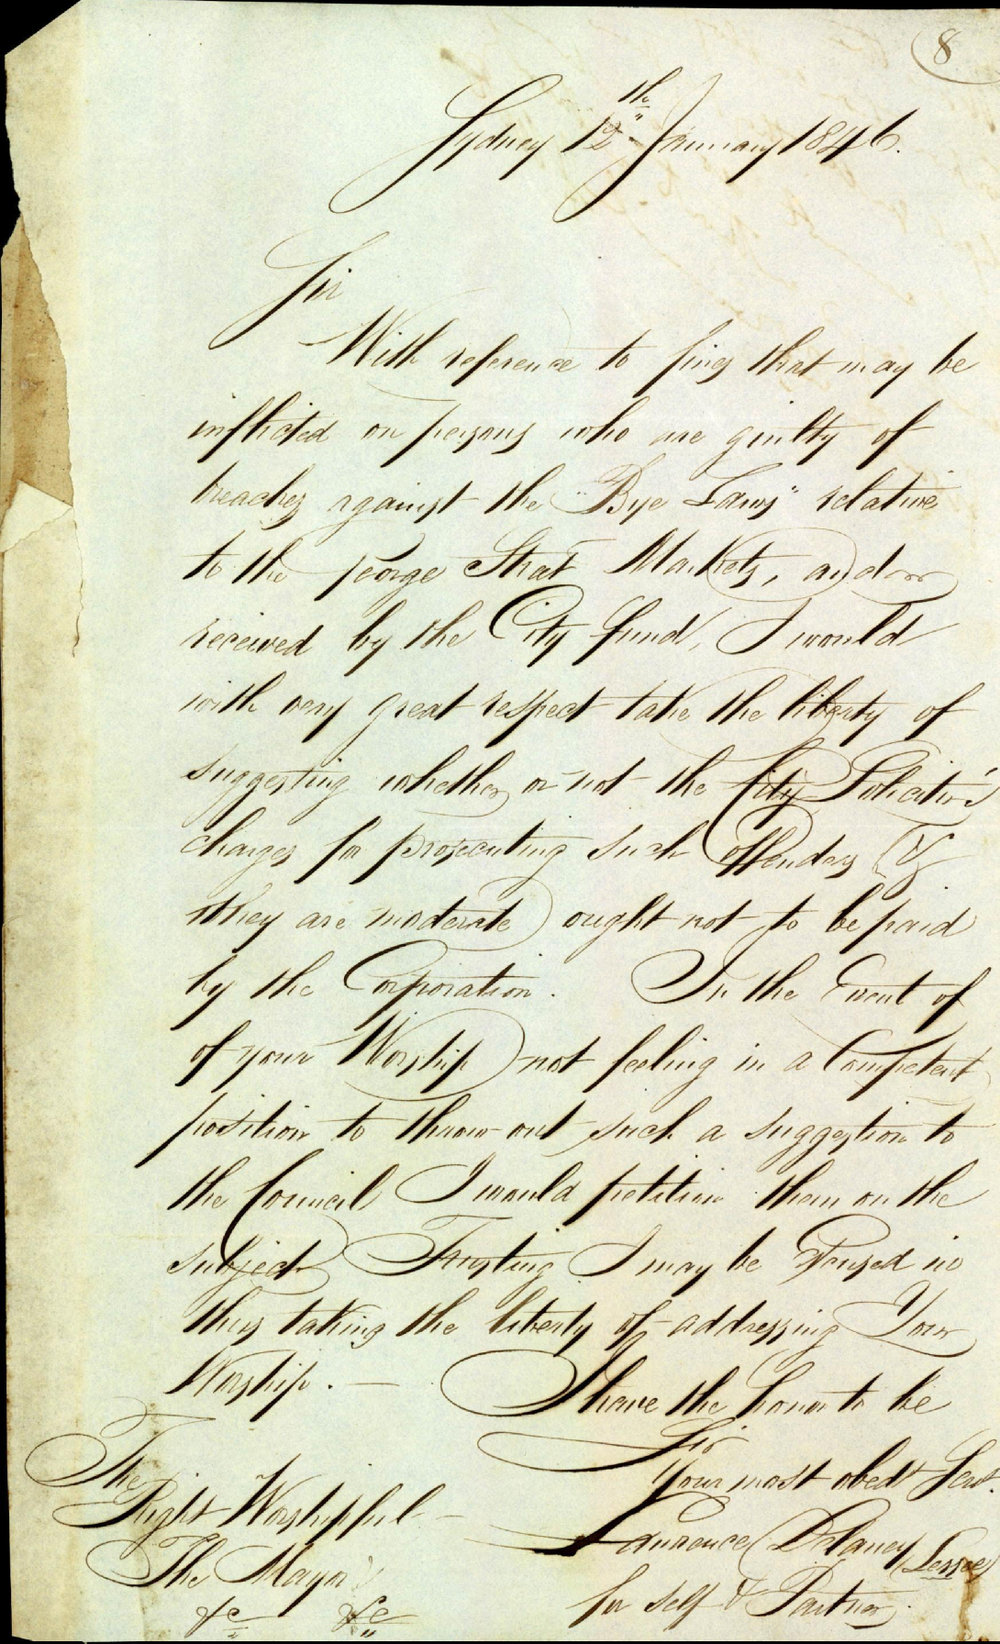 8
Sydney 12th January 1846.
Sir
With reference to fines that may be
inflicted on persons who are guilty of
breaches against the "Bye Laws" relative
to the George Street Markets, and
received by the City fund, I would
with very great respect take the liberty of
suggesting whether or not the City Solicitor's
charges for prosecuting such offenders (if
they are moderate) ought not to be paid
by the Corporation. In the Event of
of your Worship not feeling in a Competent
position to throw out such a suggestion to
the Council I would petition them on the
subject Trusting I may be Excused in
thus taking the liberty of addressing Your
Worship. —
I have the honor to be
Sir
Your most obedt Servt.
Laurence Delaney Lessee
for self & Partner.
The
Right Worshipful
The Mayor
&c &c